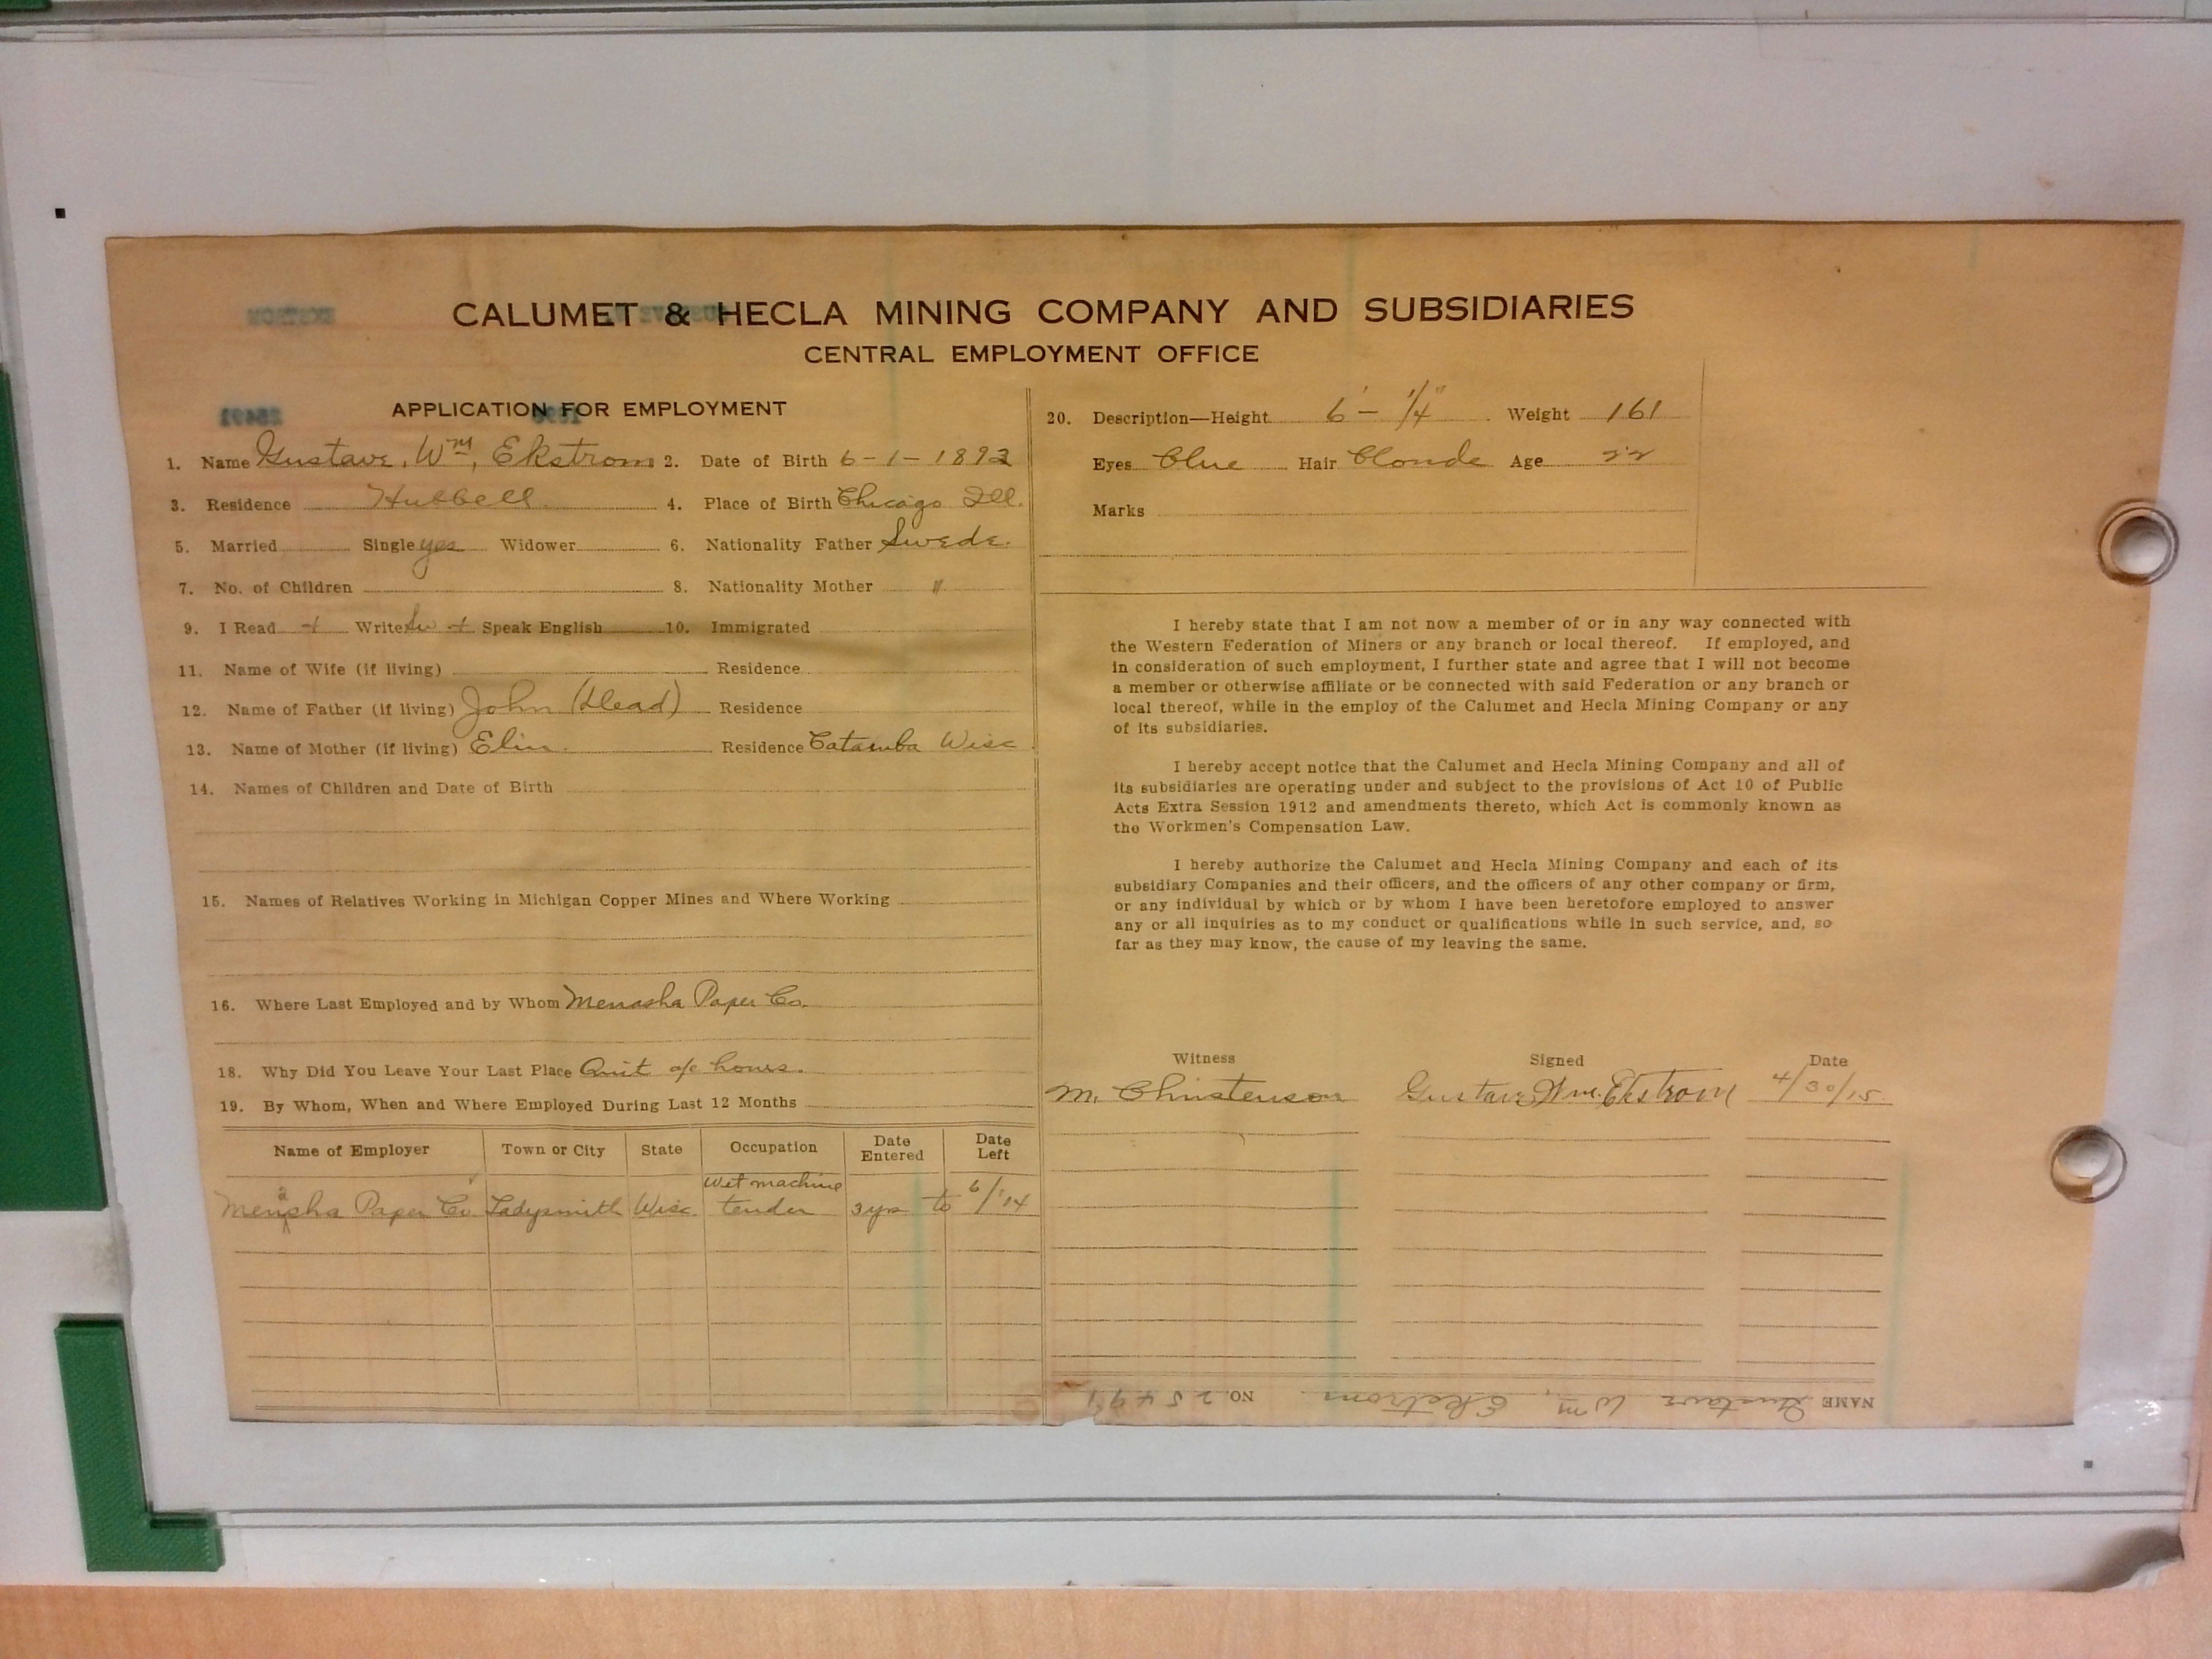 CALUMET & HECLA MINING COMPANY AND SUBSIDIARIES
CENTRAL EMPLOYMENT OFFICE
APPLICATION FOR EMPLOYMENT
1. Name Gustave, Wm, Ekstrom 2. Date of Birth 6-1-1892
3. Residence Hubbell 4. Place of Birth Chicago Ill.
5. Married Single yes Widower 6. Nationality Father Swede.
7. No. of Children 8. Nationality Mother "
9. I Read + Write Sw + Speak English 10. Immigrated
11. Name of Wife (if living) Residence
12. Name of Father (if living) John (Dead) Residence
13. Name of Mother (if living) Elin Residence Catawba Wisc
14. Names of Children and Date of Birth
15. Names of Relatives Working in Michigan Copper Mines and Where Working
16. Where Last Employed and by Whom Menasha Paper Co.
18. Why Did You Leave Your Last Place Quit a/c hours.
19. By Whom, When and Where Employed During Last 12 Months
Name of Employer Town or City State Occupation Date Entered Date Left
Menasha Paper Co Ladysmith Wisc. Wet machine tender 3 yrs to 6/'14
20. Description—Height 6' - 1/4" Weight 161
Eyes Blue Hair Blonde Age 22
Marks
I hereby state that I am not now a member of or in any way connected with
the Western Federation of Miners or any branch or local thereof. If employed, and
in consideration of such employment, I further state and agree that I will not become
a member or otherwise affiliate or be connected with said Federation or any branch or
local thereof, while in the employ of the Calumet and Hecla Mining Company or any
of its subsidiaries.
I hereby accept notice that the Calumet and Hecla Mining Company and all of
its subsidiaries are operating under and subject to the provisions of Act 10 of Public
Acts Extra Session 1912 and amendments thereto, which Act is commonly known as
the Workmen's Compensation Law.
I hereby authorize the Calumet and Hecla Mining Company and each of its
subsidiary Companies and their officers, and the officers of any other company or firm,
or any individual by which or by whom I have been heretofore employed to answer
any or all inquiries as to my conduct or qualifications while in such service, and, so
far as they may know, the cause of my leaving the same.
Witness Signed Date
M. Christenson Gustave Wm. Ekstrom 4/30/15.
NAME Gustave Wm, Ekstrom. NO. 25491